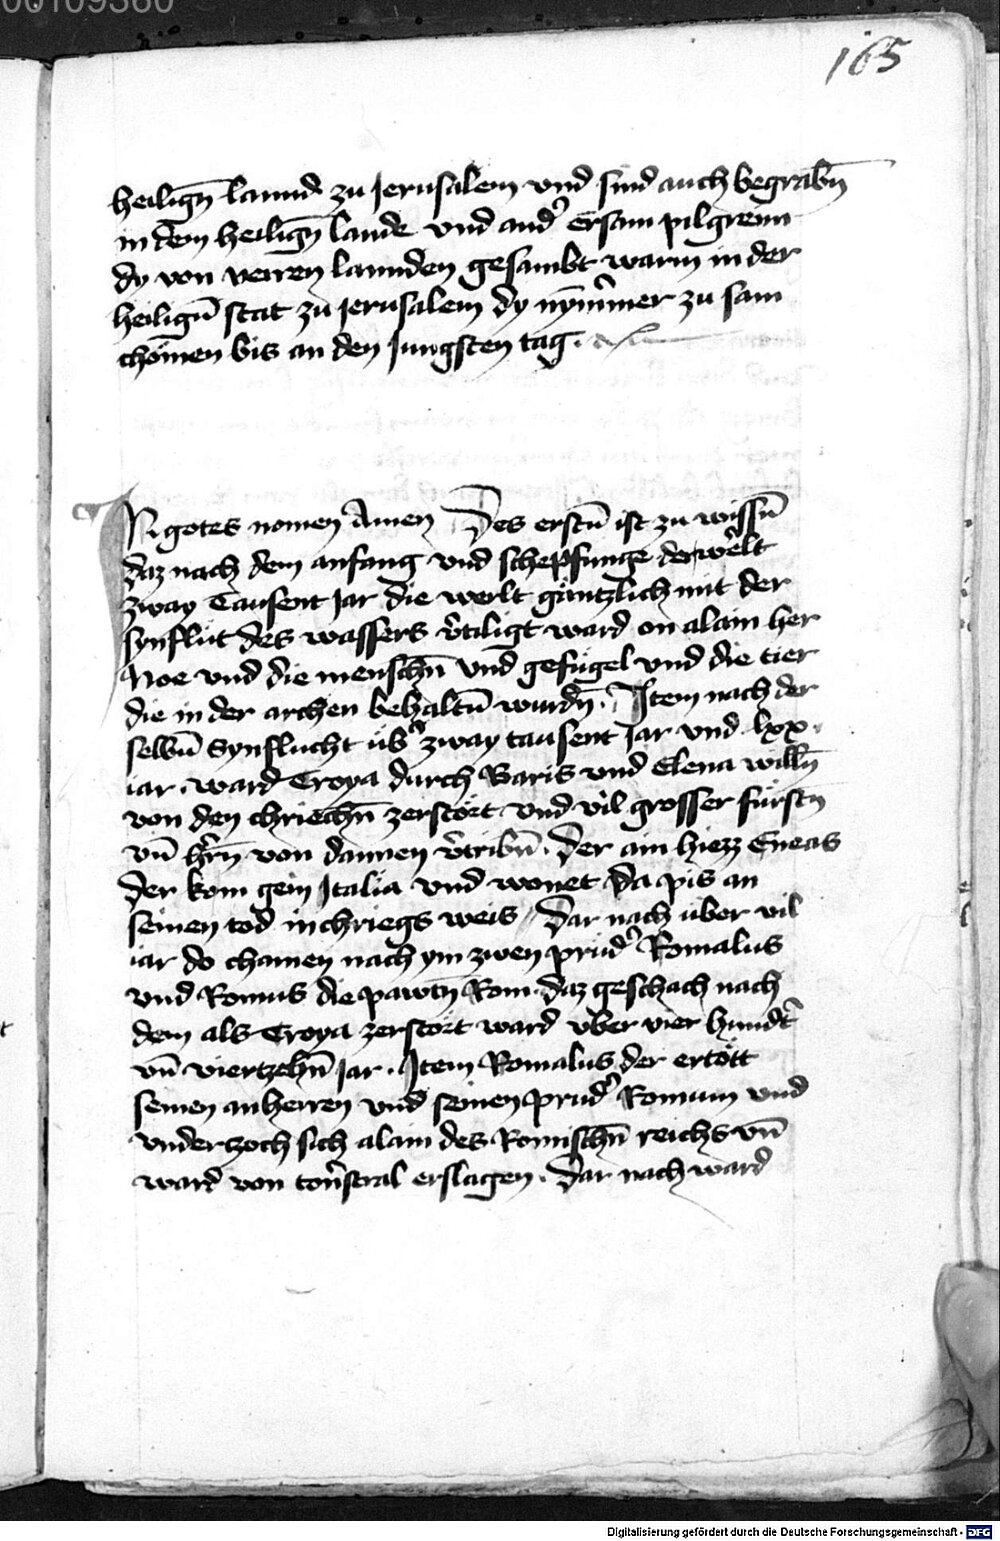 00109360
165
heilign̄ lannd zu Jerusalem vnd sind auch begrabn̄
in dem heilign̄ lande vnd and̾ Ersam pilgreim
dy von verren lannden gesambt warn in der
heilign̄ stat zu Jerusalem dy nymmer zu sam
chömen bis an den Jungsten tag.
IN gotes nomen Amen Des erstn̄ ist zu wissn̄
daz nach dem anfang vnd schepfunge der welt
zway Tausent Jar die werlt gäntzlich mit der
synflut des wassers v̾tiligt ward on alain her
Noe vnd die menschn̄ vnd gefugel vnd die tier
die in der archen behaltn̄ wurdn̄. Item nach der
selbn̄ Synflucht üb̾ zway tausent Jar vnd lxx.
iar. ward Troya durch Baris vnd Elena willn̄
von den chriechn̄ zerstört vnd vil grosser fürstn̄
vn̄ h̾rn̄ von dannen v̾tribn̄. Der ain hiezz Eneas
der kom gein Italia vnd wonet da pis an
seinen tod in chriegs weis Dar nach über vil
iar do chamen nach ym zwen prüd̾ Romalus
vnd Romus die pawtn̄ Rom. daz geschach nach
dem als Troya zerstört ward vber vier hundt̾
vn̄ viertzehn̄ Jar. Item Romalus der ertött
seinen anherren vnd seinen prud̾ Romum vnd
vnderzoch sich alain des Romischn̄ reichs vn̄
ward von erslagen. Dar nach ward
Digitalisierung gefördert durch die Deutsche Forschungsgemeinschaft - DFG